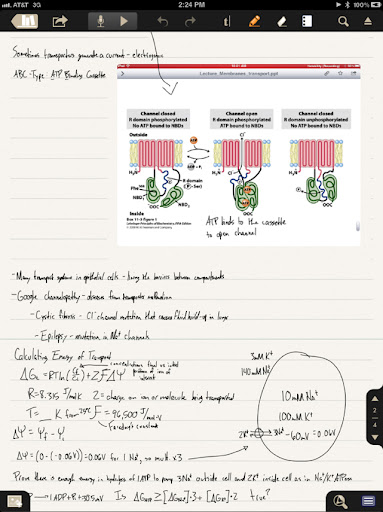 AT&T 3G
2:24 PM
100%
Sometimes transporters generate a current - electrogenic
ABC-Type: ATP Binding Cassette
Lecture_Membranes_transport.ppt
Channel closed
R domain phosphorylated
No ATP bound to NBDs
Channel open
R domain phosphorylated
ATP bound to NBDs
Channel closed
R domain unphosphorylated
No ATP bound to NBDs
Outside
Cl⁻
H₃N
R domain
P -Ser
Phe
NBD₁
NBD₂
OOC
Inside
ATP
H₃N
OOC
H₃N
OOC
Box 11-3 figure 1
Lehninger Principles of Biochemistry, Fifth Edition
ATP binds to the cassette
to open channel
-Many transport systems in epithelial cells - lining the barriers between compartments
-Google channelopathy - diseases from transporter malfunction
-Cystic fibrosis - Cl⁻ channel mutation that causes fluid build-up in lungs
-Epilepsy - mutation in Na⁺ channels
Calculating Energy of Transport
ΔGt = RTln(C₂/C₁) + ZFΔΨ
R = 8.315 J/mol·K Z = charge on ion or molecule being transported
T = __ K from 25°C F = 96,500 J/mol·V
Faraday's constant
ΔΨ = Ψf - Ψi
ΔΨ = (0-(-0.06V)) = 0.06V for 1 Na⁺, so mult. x3
3mM K⁺
140mM Na⁺
10mM Na⁺
100mM K⁺
2K⁺
3Na⁺
-60mV = 0.06V
Prove there is enough energy in hydrolysis of 1 ATP to pump 3Na⁺ outside cell and 2K⁺ inside cell as in Na⁺/K⁺ATPase
1 ADP + Pi + 30.5mV
2
4